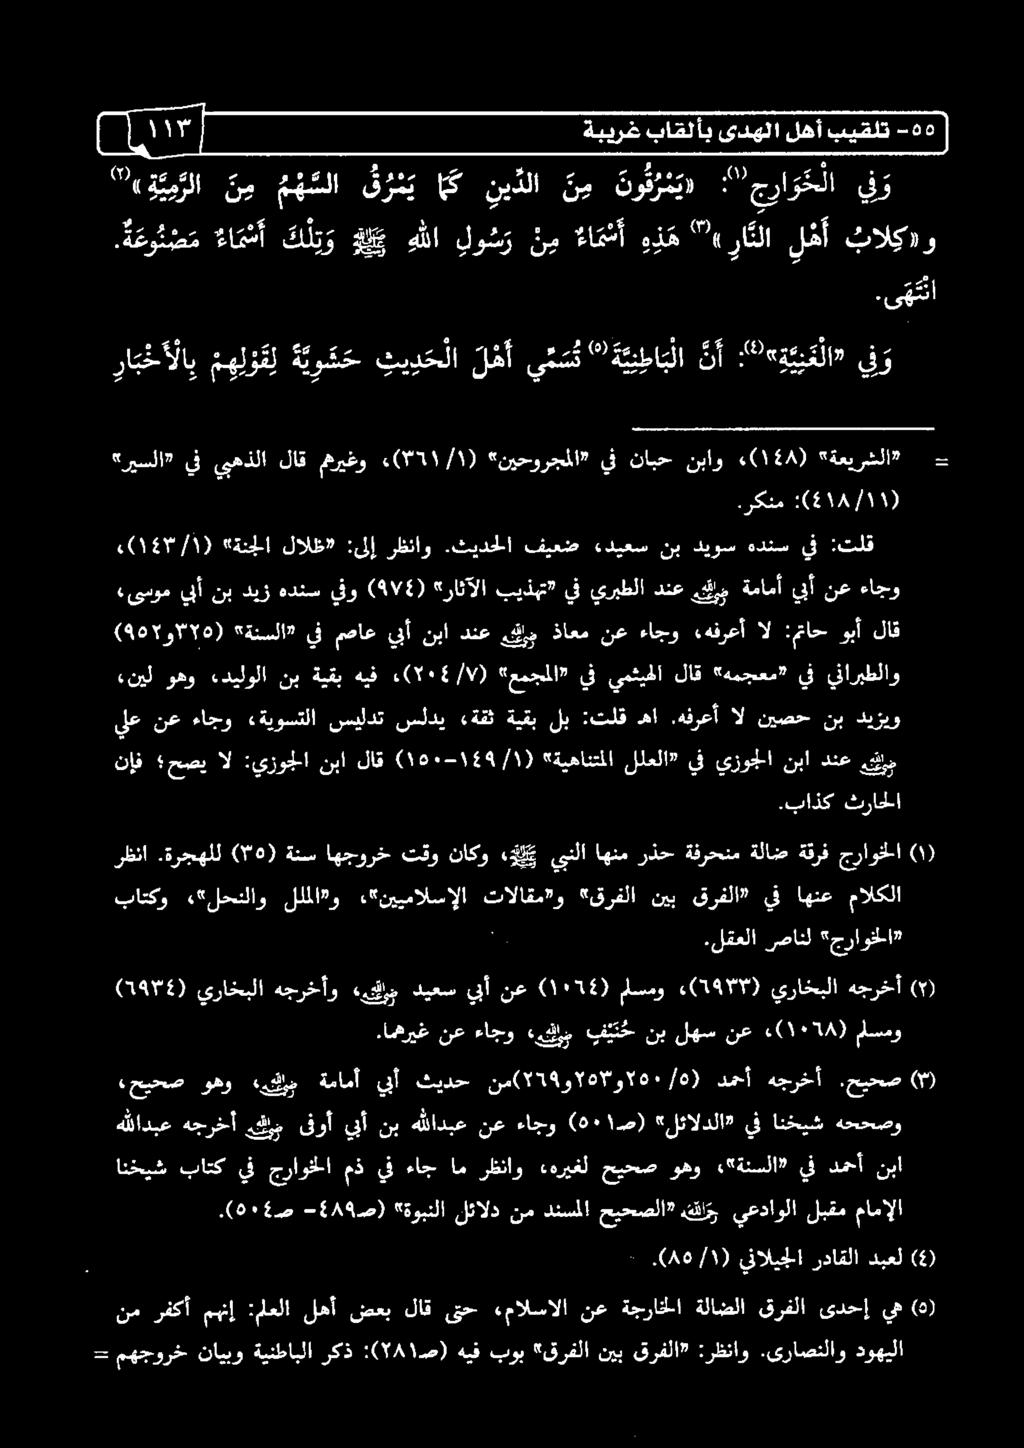 ٥٥- تلقيب أهل الهدى بألقاب غريبة
١١٣
وَفِي الْخَوَارِجِ(١): «يَمْرُقُونَ مِنَ الدِّينِ كَمَا يَمْرُقُ السَّهْمُ مِنَ الرَّمِيَّةِ»(٢)
و«كِلَابُ أَهْلِ النَّارِ»(٣) هَذِهِ أَسْمَاءٌ مِنْ رَسُولِ اللهِ ﷺ وَتِلْكَ أَسْمَاءٌ مَصْنُوعَةٌ.
انْتَهَى.
وَفِي «الْغَنِيَّةِ»(٤): أَنَّ الْبَاطِنِيَّةَ(٥) تُسَمِّي أَهْلَ الْحَدِيثِ حَشَوِيَّةً لِقَوْلِهِمْ بِالْأَخْبَارِ
= «الشريعة» (١٤٨)، وابن حبان في «المجروحين» (١/ ٣٦١)، وغيرهم قال الذهبي في «السير»
(١١/ ٤١٨): منكر.
قلت: في سنده سويد بن سعيد، ضعيف الحديث. وانظر إلى: «ظلال الجنة» (١/ ١٤٣)،
وجاء عن أبي أمامة رضي الله عنه عند الطبري في «تهذيب الآثار» (٩٧٤) وفي سنده زيد بن أبي موسى،
قال أبو حاتم: لا أعرفه، وجاء عن معاذ رضي الله عنه عند ابن أبي عاصم في «السنة» (٣٢٥و٩٥٢)
والطبراني في «معجمه» قال الهيثمي في «المجمع» (٧/ ٢٠٤)، فيه بقية بن الوليد، وهو لين،
ويزيد بن حصين لا أعرفه. اهـ قلت: بل بقية ثقة، يدلس تدليس التسوية، وجاء عن علي
رضي الله عنه عند ابن الجوزي في «العلل المتناهية» (١/ ١٤٩-١٥٠) قال ابن الجوزي: لا يصح؛ فإن
الحارث كذاب.
(١) الخوارج فرقة ضالة منحرفة حذر منها النبي ﷺ، وكان وقت خروجها سنة (٣٥) للهجرة. انظر
الكلام عنها في «الفرق بين الفرق» و«مقالات الإسلاميين»، و«الملل والنحل»، وكتاب
«الخوارج» لناصر العقل.
(٢) أخرجه البخاري (٦٩٣٣)، ومسلم (١٠٦٤) عن أبي سعيد رضي الله عنه، وأخرجه البخاري (٦٩٣٤)
ومسلم (١٠٦٨)، عن سهل بن حُنَيْفٍ رضي الله عنه، وجاء عن غيرهما.
(٣) صحيح. أخرجه أحمد (٥/ ٢٥٠و٢٥٣و٢٦٩)من حديث أبي أمامة رضي الله عنه، وهو صحيح،
وصححه شيخنا في «الدلائل» (ص٥٠١) وجاء عن عبدالله بن أبي أوفى رضي الله عنه أخرجه عبدالله
ابن أحمد في «السنة»، وهو صحيح لغيره، وانظر ما جاء في ذم الخوارج في كتاب شيخنا
الإمام مقبل الوادعي رحمه الله «الصحيح المسند من دلائل النبوة» (ص٤٨٩- ص٥٠٤).
(٤) لعبد القادر الجيلاني (١/ ٨٥).
(٥) هي إحدى الفرق الضالة الخارجة عن الاسلام، حتى قال بعض أهل العلم: إنهم أكفر من
اليهود والنصارى. وانظر: «الفرق بين الفرق» بوب فيه (ص٢٨١): ذكر الباطنية وبيان خروجهم =